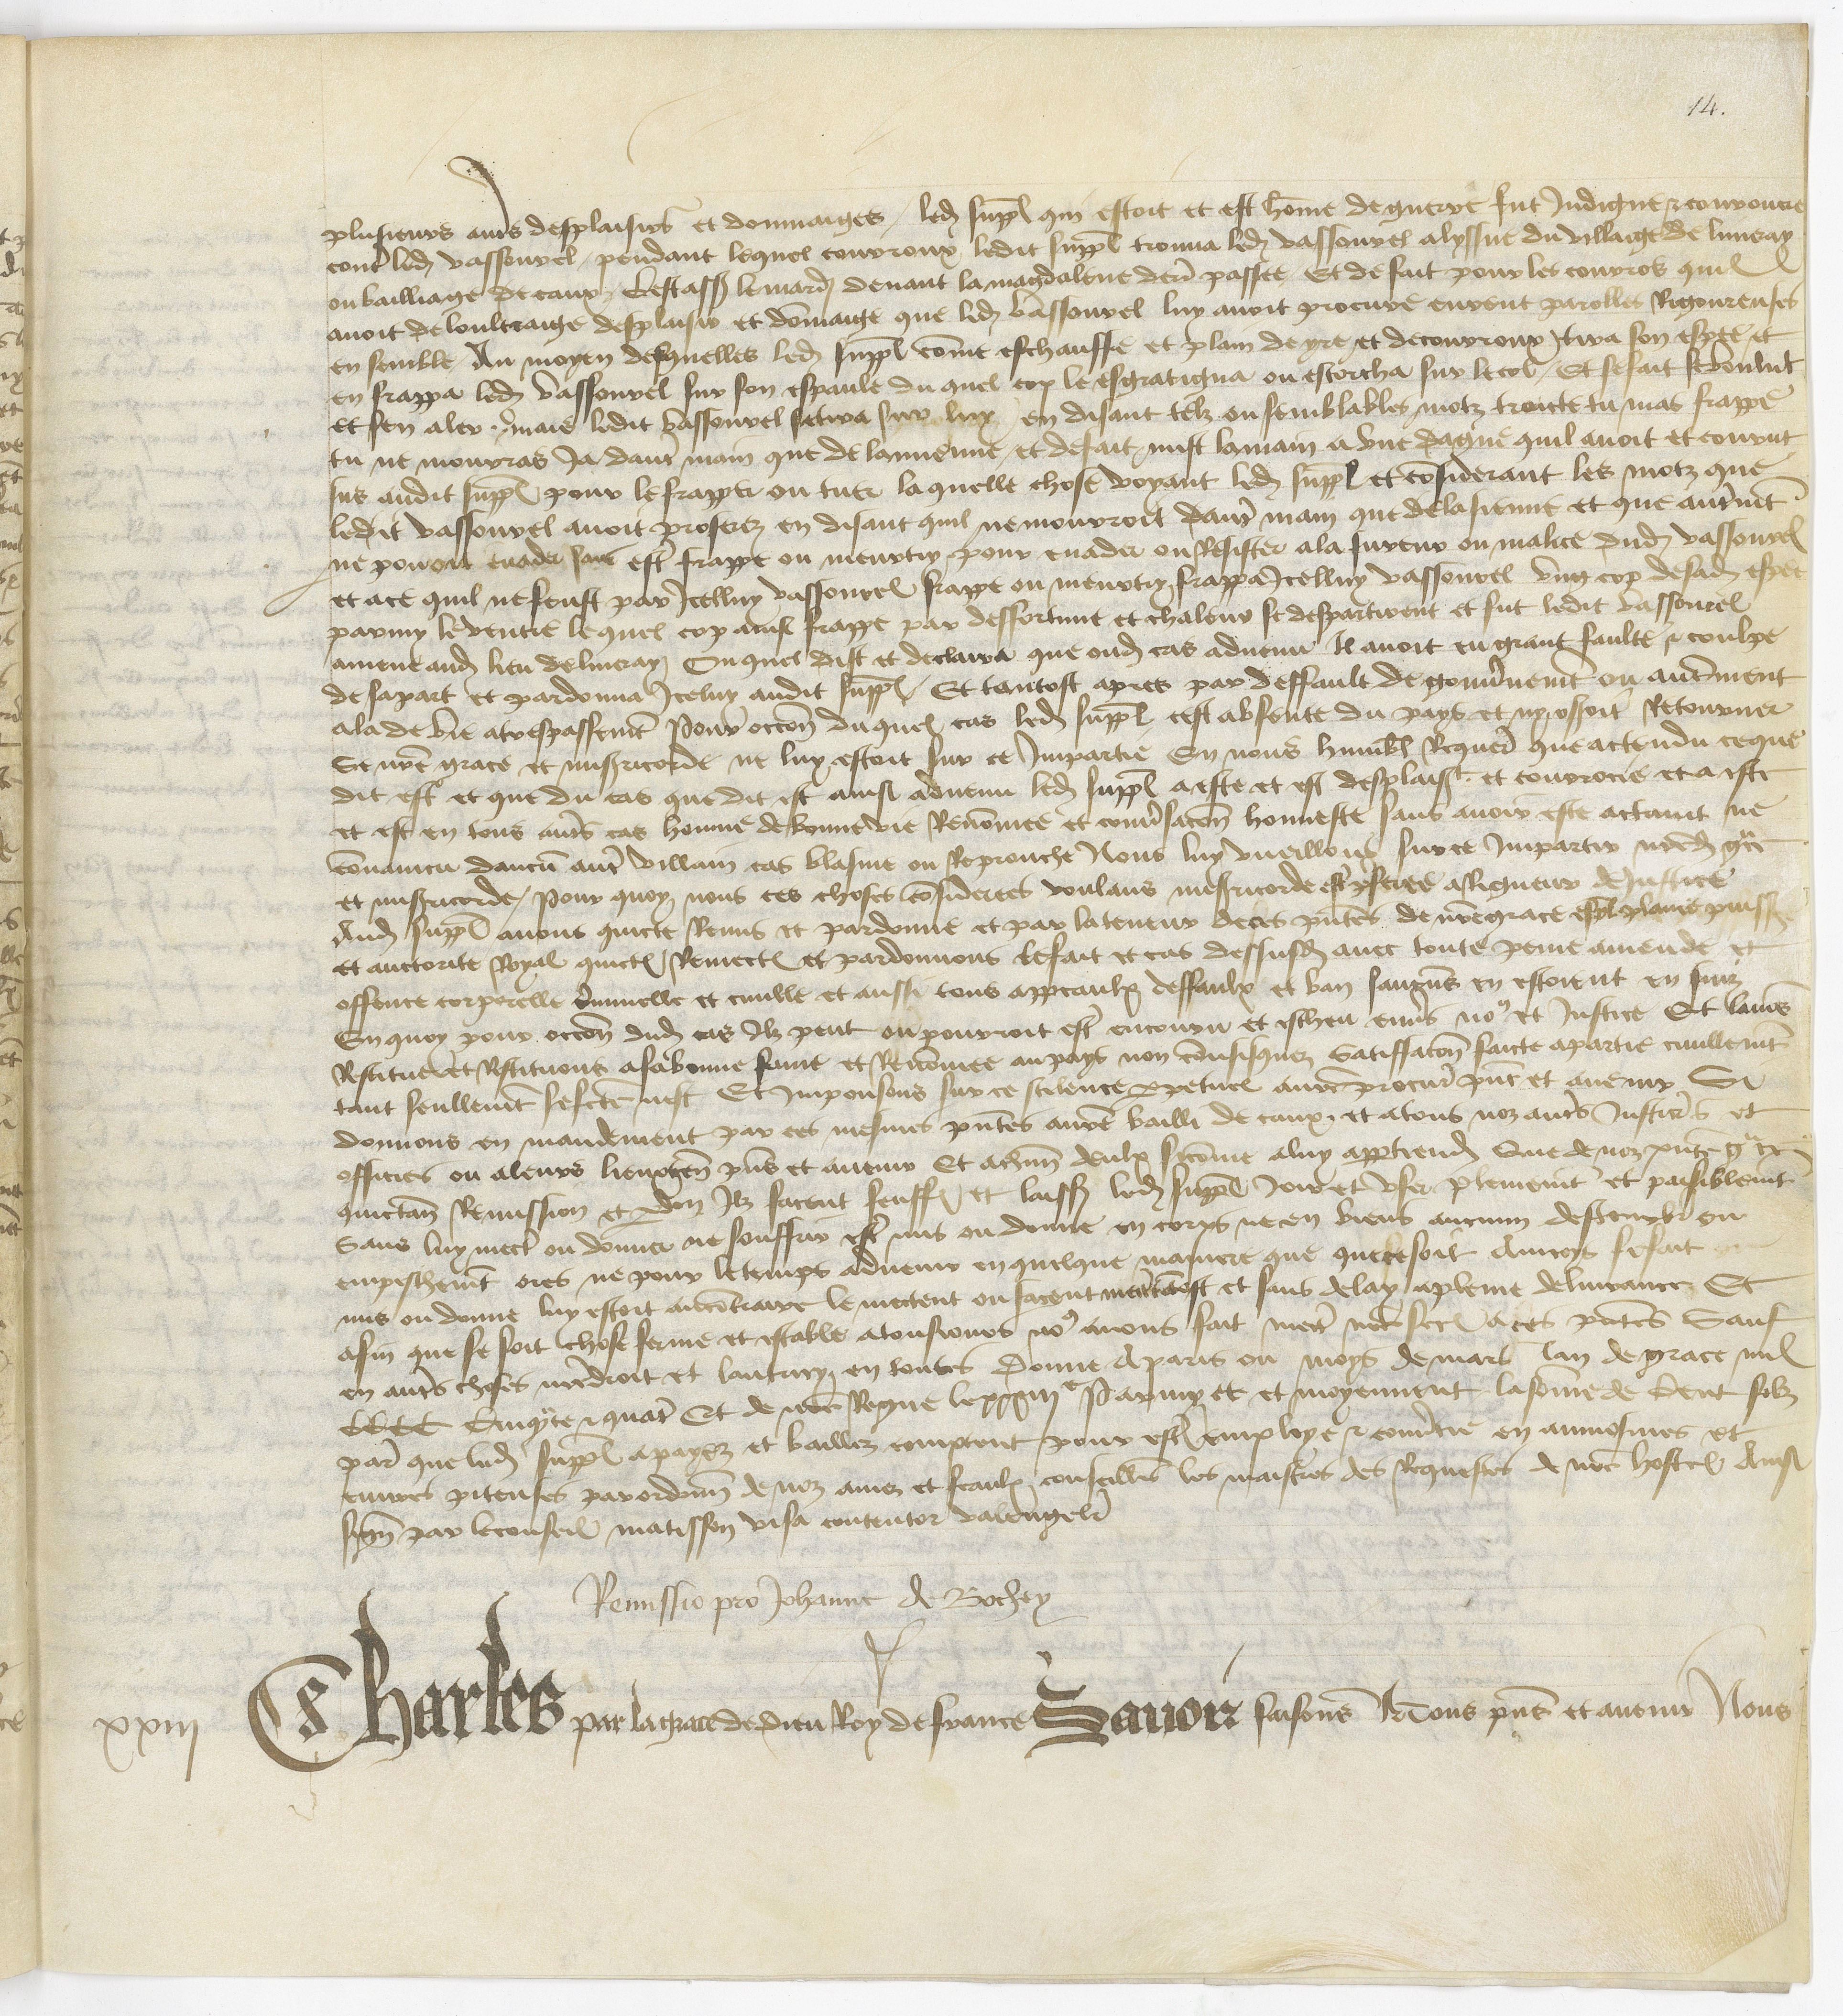 14.
plusieurs aut's desplaisirs et dommaiges / led suppl qui estoit et est hom̃e de guerre fut Indigne & courouce
cont' led vassourel / pendant lequel courroux ledit suppl trouua led vassourel alyssue du villaige de luneray
ou bailliage de caux / Cestass le mard deuant la magdalene der passee Et de fait pour les courros quil
auoit de loultraige desplaisir et dom̃aige que led vassourel luy auoit procure eurent parolles Rigoureuses
en semble Au moyen desquelles led suppl com̃e eschauffe et plain de yre et de courroux tira son espee et
en frappa led vassourel sur son espaule du quel cop le esgratigna ou escorcha sur le col / Et se fait se voulut
et sen aler / mais ledit vassourel se tira sur luy en disant telz ou semblables motz traicte tu mas frappe
tu ne mourras Ja daut' main que de la mienne / et de fait mist la main a vne dague quil auoit et courut
sus audit suppl pour le frapper ou tuer la quelle chose voyant led suppl et considerant les motz que
ledit vassourel auoit proferez en disant quil ne mourroit daut' main que de la sienne et que autremt
ne pouoit euader sans est' frappe ou meurtry / pour euader ou Resister ala fureur ou malice dud vassourel
et ace quil ne feust par Icelluy vassourel frappe ou meurtry frappa Icelluy vassourel vng cop de sad espee
parmy le ventre lequel cop ainsi frappe par deffortune et chaleur se departirent et fut ledit vassourel
amene aud lieu de luneray Ouquel dist et declaira que oud cas aduenu Il auoit eu grant faulte & coulpe
de sa part et pardonna Iceluy audit suppl Et tantost apres par deffault de gouuernemt ou autrement
ala de vie a trespassemt Pour occon duquel cas led suppl cest absente du pays et ny osseroit Retourner
Se nre grace et misericorde ne luy estoit sur ce Impartie En nous humbl Requer que actendu ce que
dit est et que du cas que dit est ainsi aduenu led suppl a este et est desplais et courocie et a este
et est en tous aut's cas homme de bonne vie Renom̃ee et conuersacon honneste sans auoir este actaint ne
conuaincu daucun aut' villain cas blasme ou Reprouche Nous luy vueillons sur ce Impartir nred grace
et misericorde / Pour quoy nous ces choses considerees voulans misericorde est' preferee a Rigueur de Justice
Aud suppl auons quicte Remis et pardonne et par la teneur de ces pntes de nre grace espl plaine puiss
et auctorite Royal quicts Remects et pardonnons le fait et cas dessusd auec toute peine amende et
offence corporelle criminelle et ciuille et aussi tous appeaulx deffaulx et ban saucuns en estoient en suiz
En quoy pour occon dud cas Ilz peut ou pourroit est' encouru et escheu enuers nous et Justice Et lauons
Restitue et Restituons a sa bonne fame et Renom̃ee au pays non confisquez Satiffacon faicte a partie ciuillemt
tant seullemt se fcte nest Et Imponsons sur ce scilence ppetuel anre procur pnt et auenir Si
donnons en mandement par ces mesmes pntes anre bailli de caux et atous noz aut's Justiciers et
officiers ou aleurs lieuxten pns et auenir Et achun deulx sicom̃e aluy appartiend Que de noz pnte grace
quictan Remission et pdon Ilz facent seuff et laiss led suppl Joir et vser plenemt et paisiblemt
Sans luy mect' ou donner ne souffrir est' mis ou donne en corps ne en biens aucun destourbr ou
empeschemt ores ne pour le temps aduenir en quelque maniere que que ce soit Aincoys se fait
mis ou donne luy estoit au contraire le mectent ou facent mect' tantost et sans delay apleine deliurance Et
afin que se soit chose ferme et estable atousiours nous auons fait mect' nre scel aces pntes Sauf
en aut's choses nre droit et lautruy en toutes Donne A paris ou moys de mars lan de grace mil
CCCC Cinqte & quat' Et de nre Regne le xxxiii Parmy ce et moyennent la som̃e de Cent solz
par que led suppl a payez et baillez comptent pour est' employe & conuertie en aumosnes et
euures piteuses par ordonn de noz amez et feaulx conseilliers les maistres des Requestes de nre hostel Ainsi
sign par le conseil matisson visa contentor valengelier
Remissio pro Johanne de Bochey
xxiii Charles par la grace de dieu Roy de france Sauoir faisons A tous pns et auenir Nous